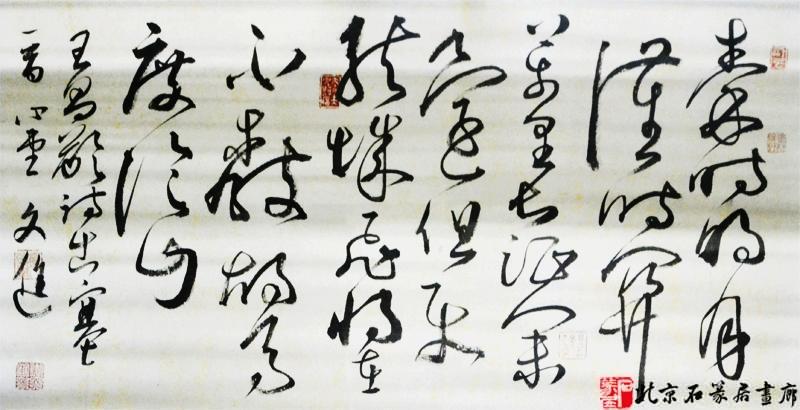 秦時明月
漢時關
萬里長征人未
還但使
龍城飛將在
不教胡馬
度陰山
王昌齡詩出塞
雲文進
北京石篆居畫廊